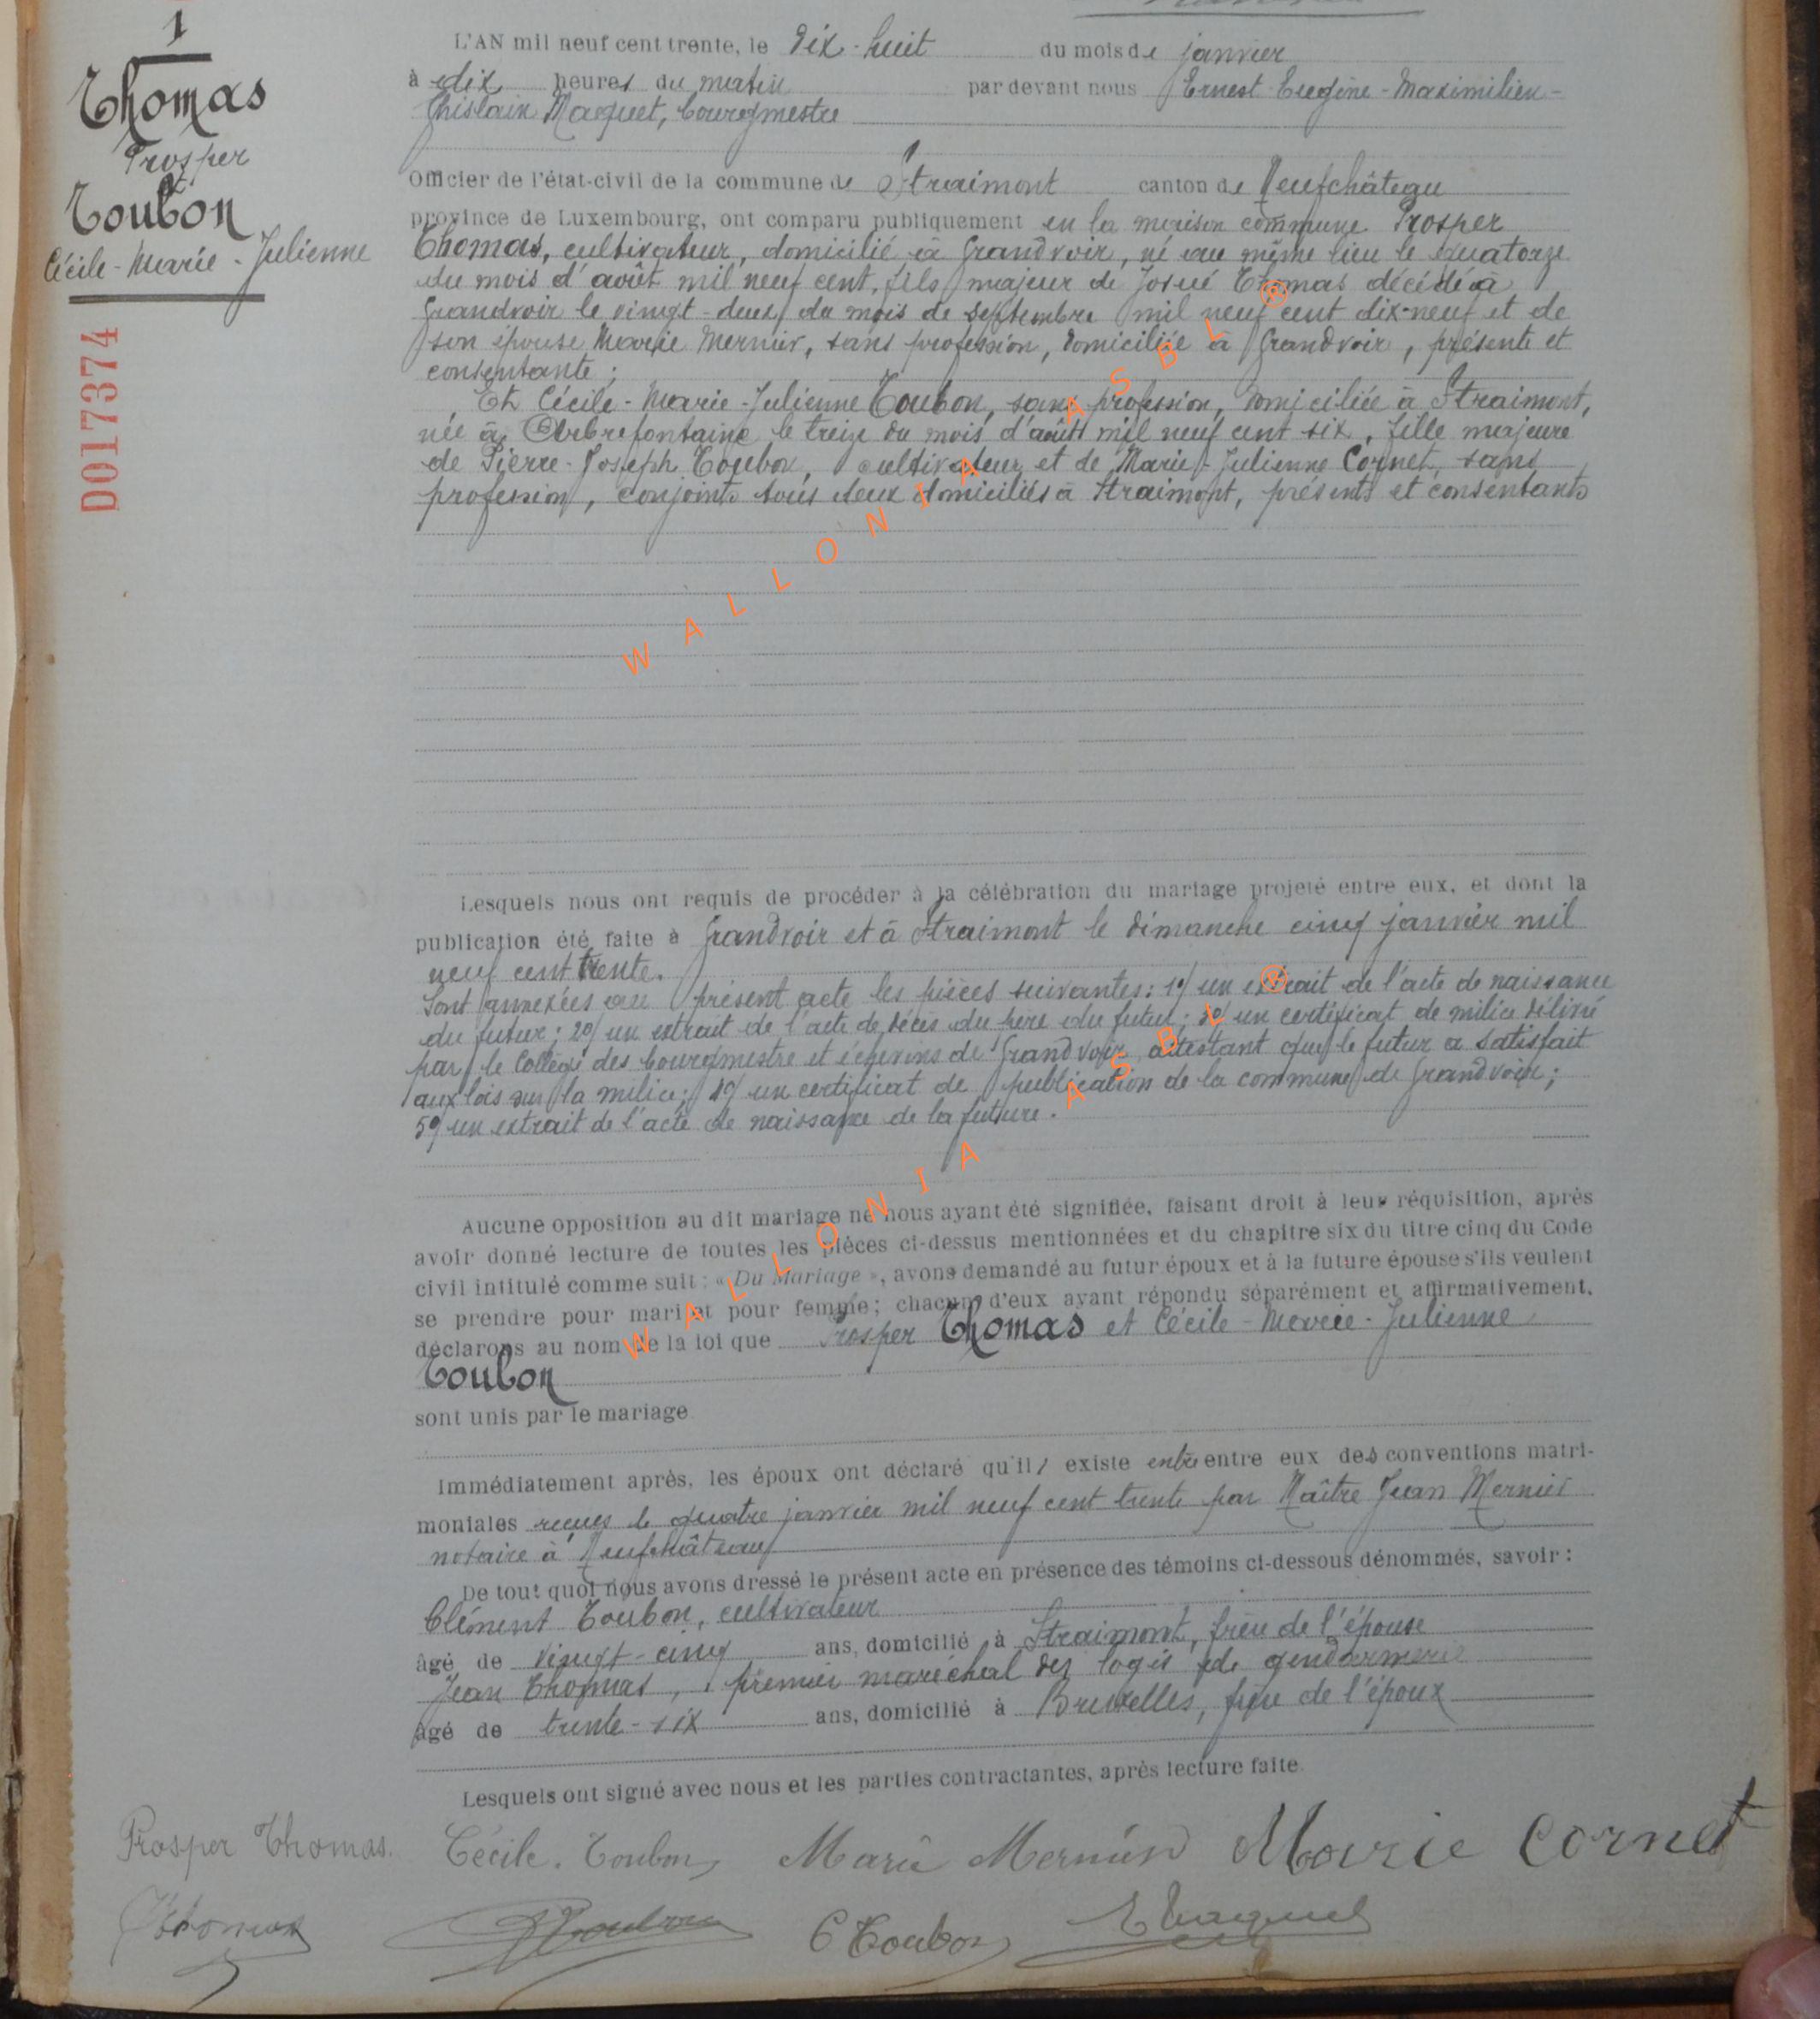 1
Thomas
Prosper
et
Toubon
Cécile-Marie-Julienne
D017374
L'AN mil neuf cent trente, le Dix-huit du mois de janvier
à dix heures du matin par devant nous Ernest-Eugène-Maximilien-
Ghislain Maquet, bourgmestre
Officier de l'état-civil de la commune de Straimont canton de Neufchâteau
province de Luxembourg, ont comparu publiquement en la maison commune Prosper
Thomas, cultivateur, domicilié à Grandvoir, né au même lieu le quatorze
du mois d'août mil neuf cent, fils majeur de Josué Thomas décédé à
Grandvoir le vingt-deux du mois de septembre mil neuf cent dix-neuf et de
son épouse Marie Mernier, sans profession, domiciliée à Grandvoir, présente et
consentante;
Et Cécile-Marie-Julienne Toubon, sans profession, domiciliée à Straimont,
née à Arbrefontaine le treize du mois d'août mil neuf cent six, fille majeure
de Pierre-Joseph Toubon, cultivateur et de Marie-Julienne Cornet, sans
profession, conjoints tous deux domiciliés à Straimont, présents et consentants
WALLONIA ASBL ®
Lesquels nous ont requis de procéder à la célébration du mariage projeté entre eux, et dont la
publication été faite à Grandvoir et à Straimont le dimanche cinq janvier mil
neuf cent trente.
Sont annexées au présent acte les pièces suivantes: 1°/ un extrait de l'acte de naissance
du futur; 2°/ un extrait de l'acte de décès du père du futur; 3°/ un certificat de milice délivré
par le Collège des bourgmestre et échevins de Grandvoir attestant que le futur a satisfait
aux lois sur la milice; 4°/ un certificat de publication de la commune de Grandvoir;
5°/ un extrait de l'acte de naissance de la future.
WALLONIA ASBL ®
Aucune opposition au dit mariage ne nous ayant été signifiée, faisant droit à leur réquisition, après
avoir donné lecture de toutes les pièces ci-dessus mentionnées et du chapitre six du titre cinq du Code
civil intitulé comme suit: « Du Mariage », avons demandé au futur époux et à la future épouse s'ils veulent
se prendre pour mari et pour femme; chacun d'eux ayant répondu séparément et affirmativement,
déclarons au nom de la loi que Prosper Thomas et Cécile-Marie-Julienne
Toubon
sont unis par le mariage
Immédiatement après, les époux ont déclaré qu'il existe entre entre eux des conventions matri-
moniales reçues le quatre janvier mil neuf cent trente par Maître Jean Mernier
notaire à Neufchâteau
De tout quoi nous avons dressé le présent acte en présence des témoins ci-dessous dénommés, savoir:
Clément Toubon, cultivateur
âgé de vingt-cinq ans, domicilié à Straimont, frère de l'épouse
Jean Thomas, premier maréchal des logis de gendarmerie
âgé de trente-six ans, domicilié à Bruxelles, frère de l'époux
Lesquels ont signé avec nous et les parties contractantes, après lecture faite.
Prosper Thomas. Cécile. Toubon Marie Mernier Marie Cornet
Thomas Toubon C Toubon E Maquet